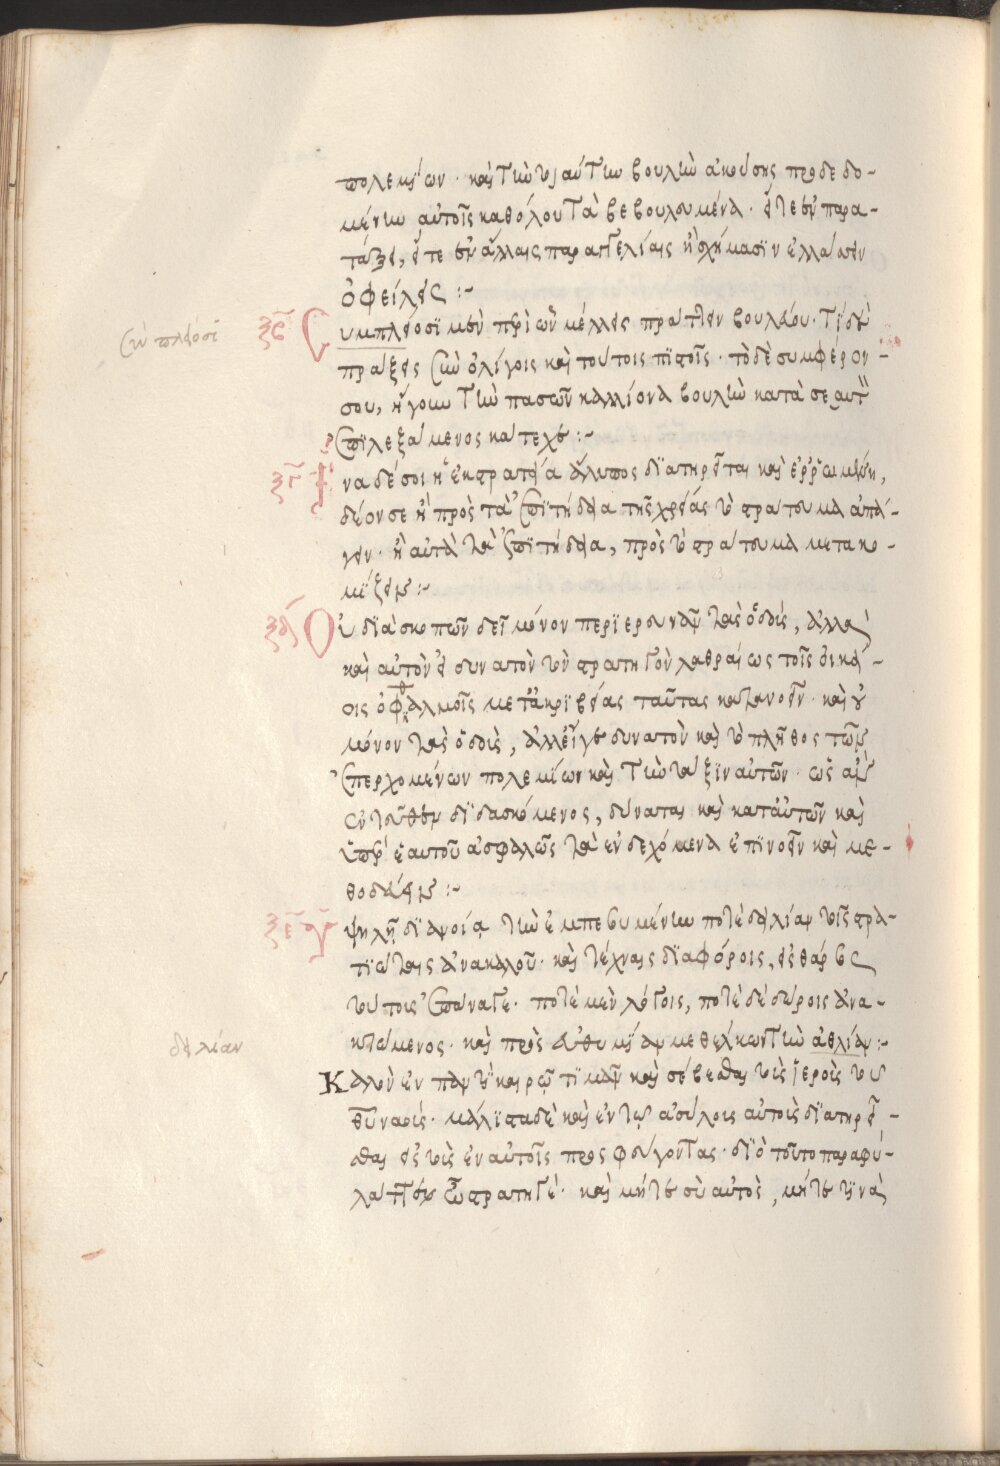 πολεμίων· καὶ τὴν τοιαύτην βουλὴν ἀκούσης προδεδο-
μένην αὐτοῖς καθόλου τὰ βεβουλουμένα· εἴτε ἐν παρα-
τάξει, εἴτε ἐν ἄλλαις παραγγελίαις ἢ σχήμασϊν ἐλλάσσειν
ὀφείλεις :-
σὺν πλείοσϊ
ξβ Συμπλείοσϊ μὲν περὶ ὧν μέλλεις πράττειν βουλεύου· τί δὲ
πράξεις σὺν ὀλίγοις καὶ τούτοις πϊστοῖς· τὸ δὲ συμφέρον
σου, ἤγουν τὴν πασῶν καλλίονα βουλὴν κατὰ σεαυτὸν
ἐπϊλεξάμενος κάτεχε :-
ξγ Ἵνα δέ σοι ἡ ἐκστρατεία ἄλυπος δϊατηρεῖται καὶ ἐρρωμένη,
δέον σε ἢ πρὸς τὰ ἐπϊτήδεια τῆς χρείας τὸ στράτουμα ἀπά-
γειν· ἢ αὐτὰ τὰ ἐπϊτήδεια, πρὸς τὸ στράτουμα μετακο-
μϊζειν :-
ξδ Οὐ δϊὰ σκοπῶν δεῖ μόνον περϊερουνᾶν τὰς ὁδοὺς, ἀλλὰ
καὶ αὐτὸν εἰ δυνατὸν τὸν στρατηγὸν λαθραίως τοῖς οἰκεί-
οις ὀφθαλμοῖς μετἀκρϊβείας ταύτας κατανοεῖν· καὶ οὐ
μόνον τὰς ὁδοὺς, ἀλλεῖγε δυνατὸν καὶ τὸ πλῆθος τῶν
ἐπερχομένων πολεμίων καὶ τὴν τάξϊν αὐτῶν· ὡς ἂν
ἐντεῦθεν δϊδασκόμενος, δύναται καὶ κατ' αὐτῶν καὶ
ὑπὲρ ἑαυτοῦ ἀσφαλῶς τὰ ἐνδεχόμενα ἐπϊνοεῖν καὶ με-
θοδεύειν :-
ξε Ὑψηλῇ δϊανοίᾳ τὴν ἐμπεσυμένην ποτὲ δειλίαν τοῖς στρα-
τϊώταις ἀνακαλοῦ· καὶ τέχναις δϊαφόροις, εἰς θάρσος
τούτους ἐπάναγε· ποτὲ μὲν λόγοις, ποτὲ δὲ δώροις ἀνα-
κτώμενος· καὶ πρὸς εὐθυμϊαν μεθέλκων τὴν ἀθλίαν :-
δειλίαν
Καλὸν ἐν παντὶ καιρῷ τϊμᾶν καὶ σέβεσθαι τοὺς ϊεροὺς τοῦ
θεοῦ ναοὺς· μάλϊστα δὲ καὶ ἐν τῷ ἀσύλοις αὐτοὺς δϊατηρεῖ-
σθαι εἰς τοὺς ἐν αὐτοῖς προσφεύγοντας· δϊὸ τοῦτο παραφύ-
λαττε ὦ στρατηγέ· καὶ μήτε σὺ αὐτὸς, μήτε τϊνὰ